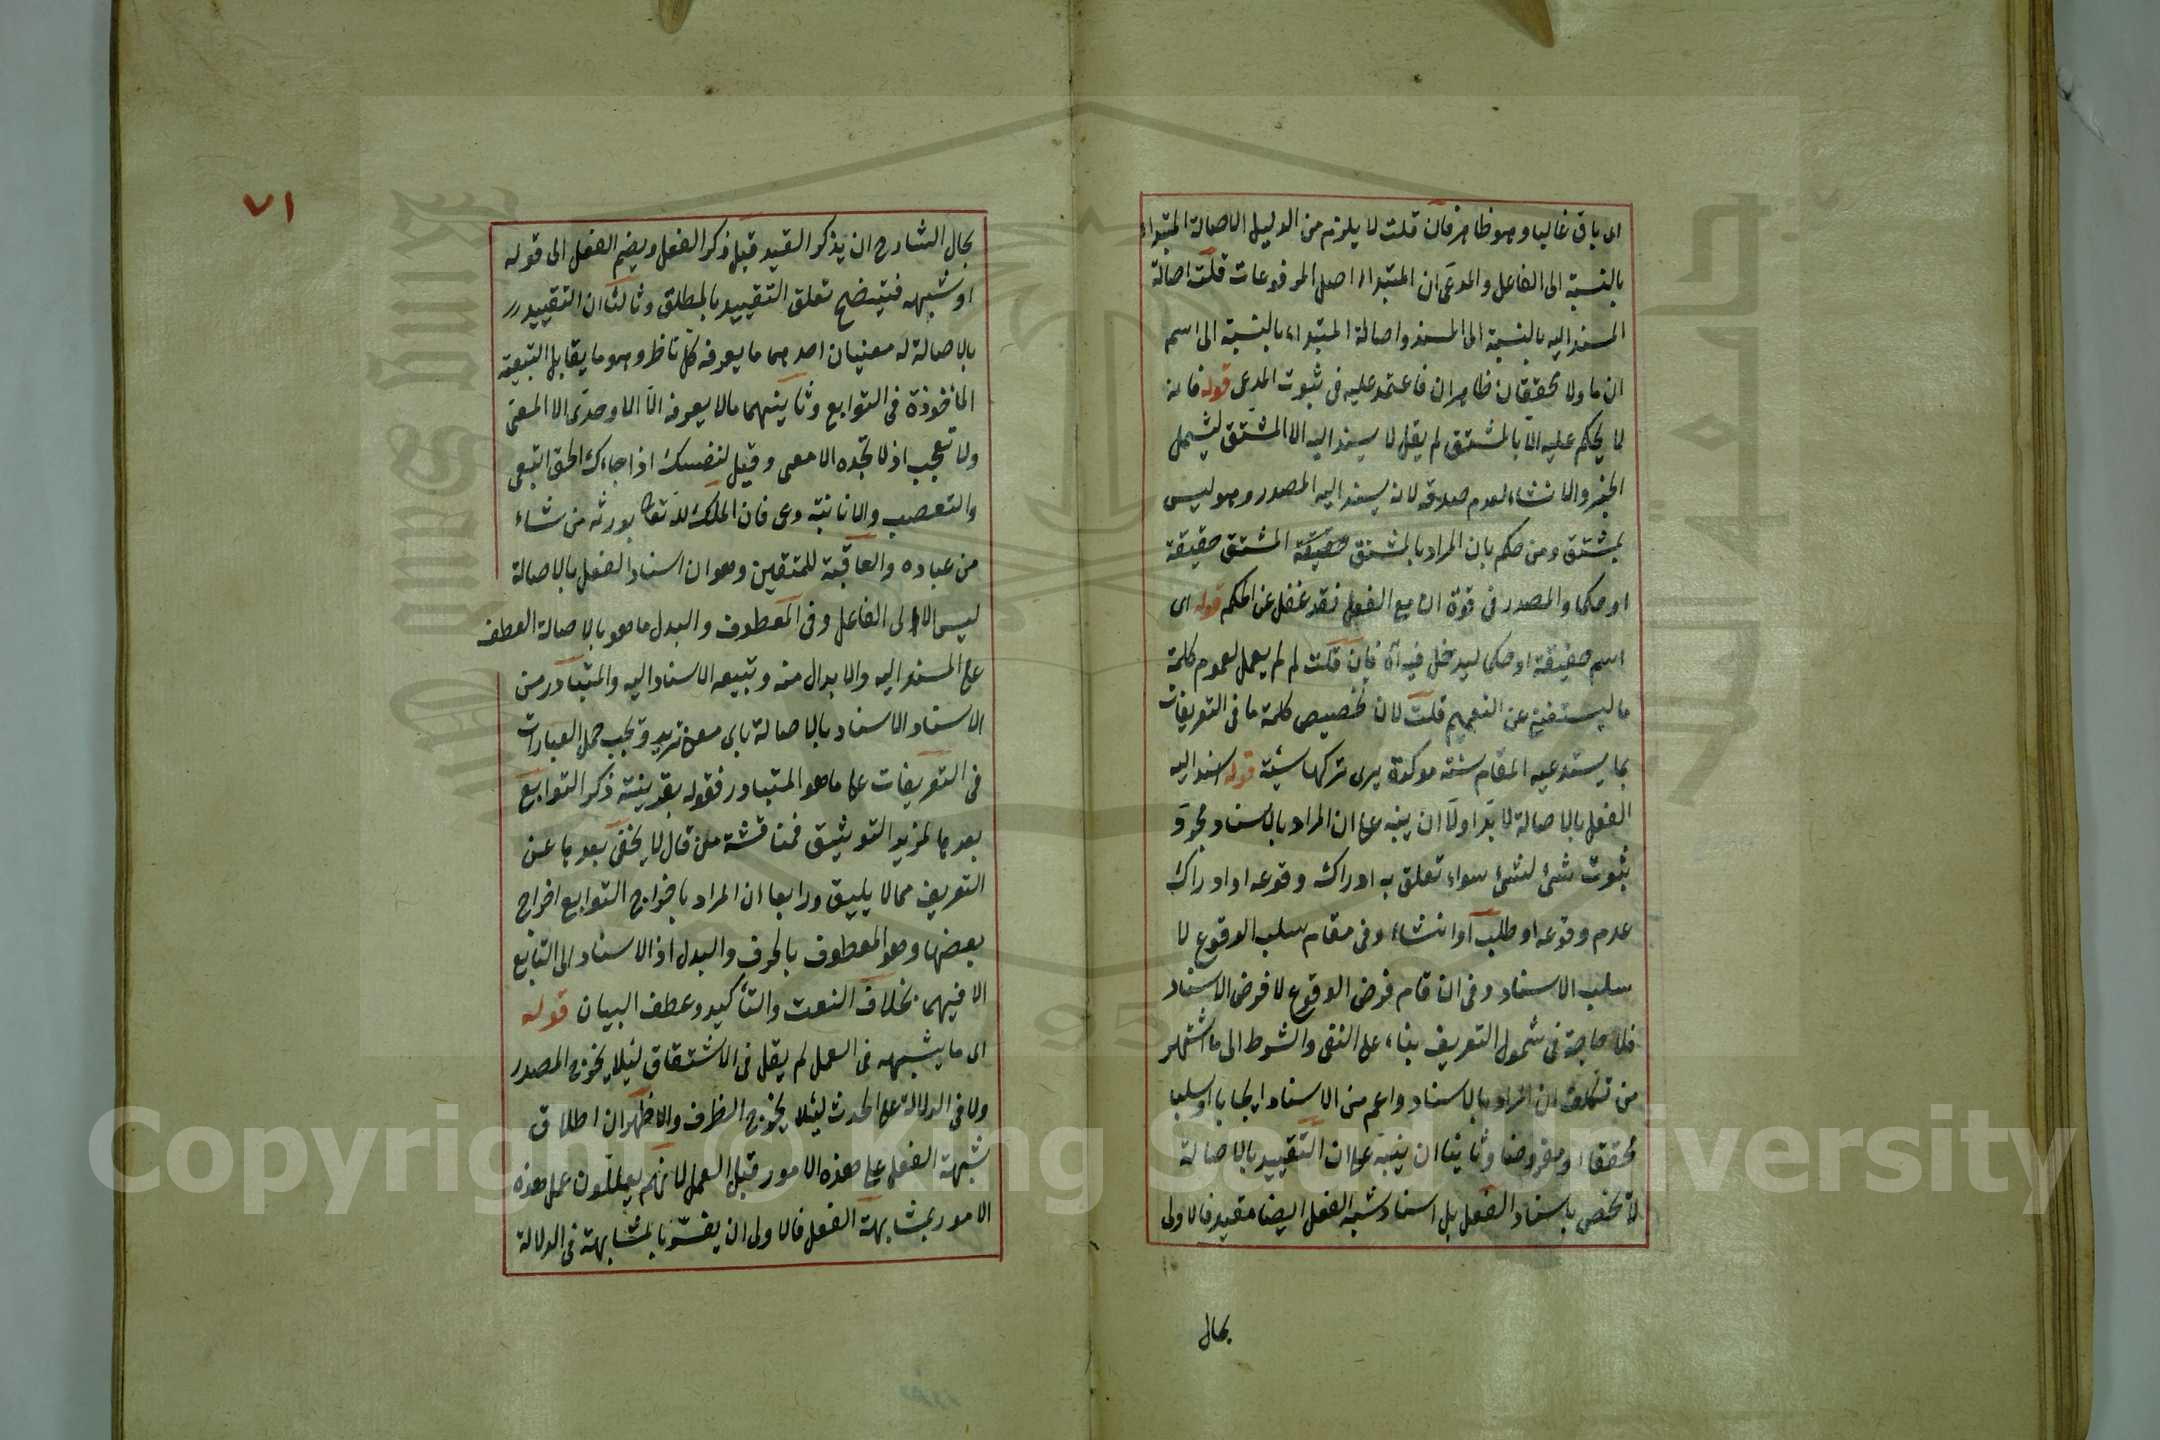 اى باق غالبا وهو ظاهر فان قلت لا يلزم من الدليل الا صالة المبتداء
بالنسبة الى الفاعل والمدعى ان المبتداء اصل المرفوعات قلت اصالة
المسند اليه بالنسبة الى المسند واصالة المبتداء بالنسبة الى اسم
ان ما ولا تحققان ظاهران فاعتمد عليه فى ثبوت المدعى قوله فانه
لا يحكم عليه الا بالمشتق لم يقل لا يسند اليه الا المشتق ليشمل
الخبر والانشاء لعدم صدقه لانه يسند اليه المصدر وهو ليس
بمشتق ومن حكم بان المراد بالمشتق حقيقة المشتق حقيقة
او حكما والمصدر فى قوة ان مع الفعل فقد غفل عن الحكم قوله اى
اسم حقيقة او حكما ليدخل فيه آه فان قلت لم لم يعمل لعموم كلمة
ما ليستغنى عن التعميم قلت لان تخصيص كلمة ما فى التعريفات
بما يستدعيه المقام سنة موكدة يرى تركها سيئة قوله اسند اليه
الفعل بالاصالة لا بد اولا ان ينبه على ان المراد بالاسناد مجرد
ثبوت شئ لشئ سواء تعلق به ادراك وقوعه او ادراك
عدم وقوعه او طلب او انشاء وفى مقام سلب الوقوع لا
سلب الاسناد وفى ان قام فرض الوقوع لا فرض الاسناد
فلا حاجة فى شمول التعريف بناء على النفى والشرط الى ما اشتهر
من تكلف ان المراد بالاسناد واعم من الاسناد ايجابا او سلبا
محققا او مفروضا وثانيا ان ينبه على ان التقييد بالاصالة
لا تختص باسناد الفعل بل اسناد شبه الفعل ايضا مقيد فالاولى
بحال
٧١
بحال الشارح ان يذكر القيد قبل ذكر الفعل ويضم الفعل الى قوله
او شبهه فيتضح تعلق التقييد بالمطلق وثالثا ان التقييد
بالاصالة له معنيان احدهما ما يعرفه كل ناظر وهو ما يقابل التبعية
الماخوذة فى التوابع وثانيهما مالا يعرفه الا الاوحدى الا المعى
ولا تعجب اذ لا تجده الا معى وقيل لنفسك اذا جاءك الحق اتبعى
والتعصب والانانية دعى فان الملك لله تعالى يورثه من شاء
من عباده والعاقبة للمتقين وهو ان اسناد الفعل بالاصالة
ليس الا الى الفاعل وفى المعطوف والبدل ما هو بالاصالة العطف
على المسند اليه والابدال منه وتبيعه الاسناد اليه والمتبادر من
الاسناد الاسناد بالاصالة باى معنى تريد وتجب حمل العبارات
فى التعريفات على ما هو المتبادر فقوله بقرينة ذكر التوابع
بعدها لمزيد التوثيق فمناقشة من قال لا يخفى بعدها عن
التعريف مما لا يليق ورابعا ان المراد باخراج التوابع اخراج
بعضها وهو المعطوف بالحرف والبدل اذ الاسناد الى التابع
الا فيهما بخلاف النعت والتأكيد وعطف البيان قوله
اى ما يشبهه فى العمل لم يقل فى الاشتقاق لئلا يخرج المصدر
ولا فى الدلالة على الحدث لئلا يخرج الظرف والاظهر ان اطلاق
شبهة الفعل على هذه الامور قبل العمل لانهم يعللون عمل هذه
الامور بمشابهة الفعل فالاولى ان يفسر بالمشابهة فى الدلالة
Copyright © King Saud University